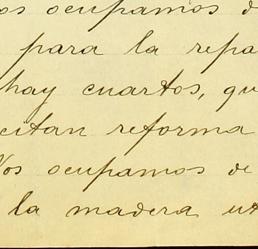 os ocupamos d
para la repa
hay cuartos, qu
citan reforma
Nos ocupamos de
la madera ut